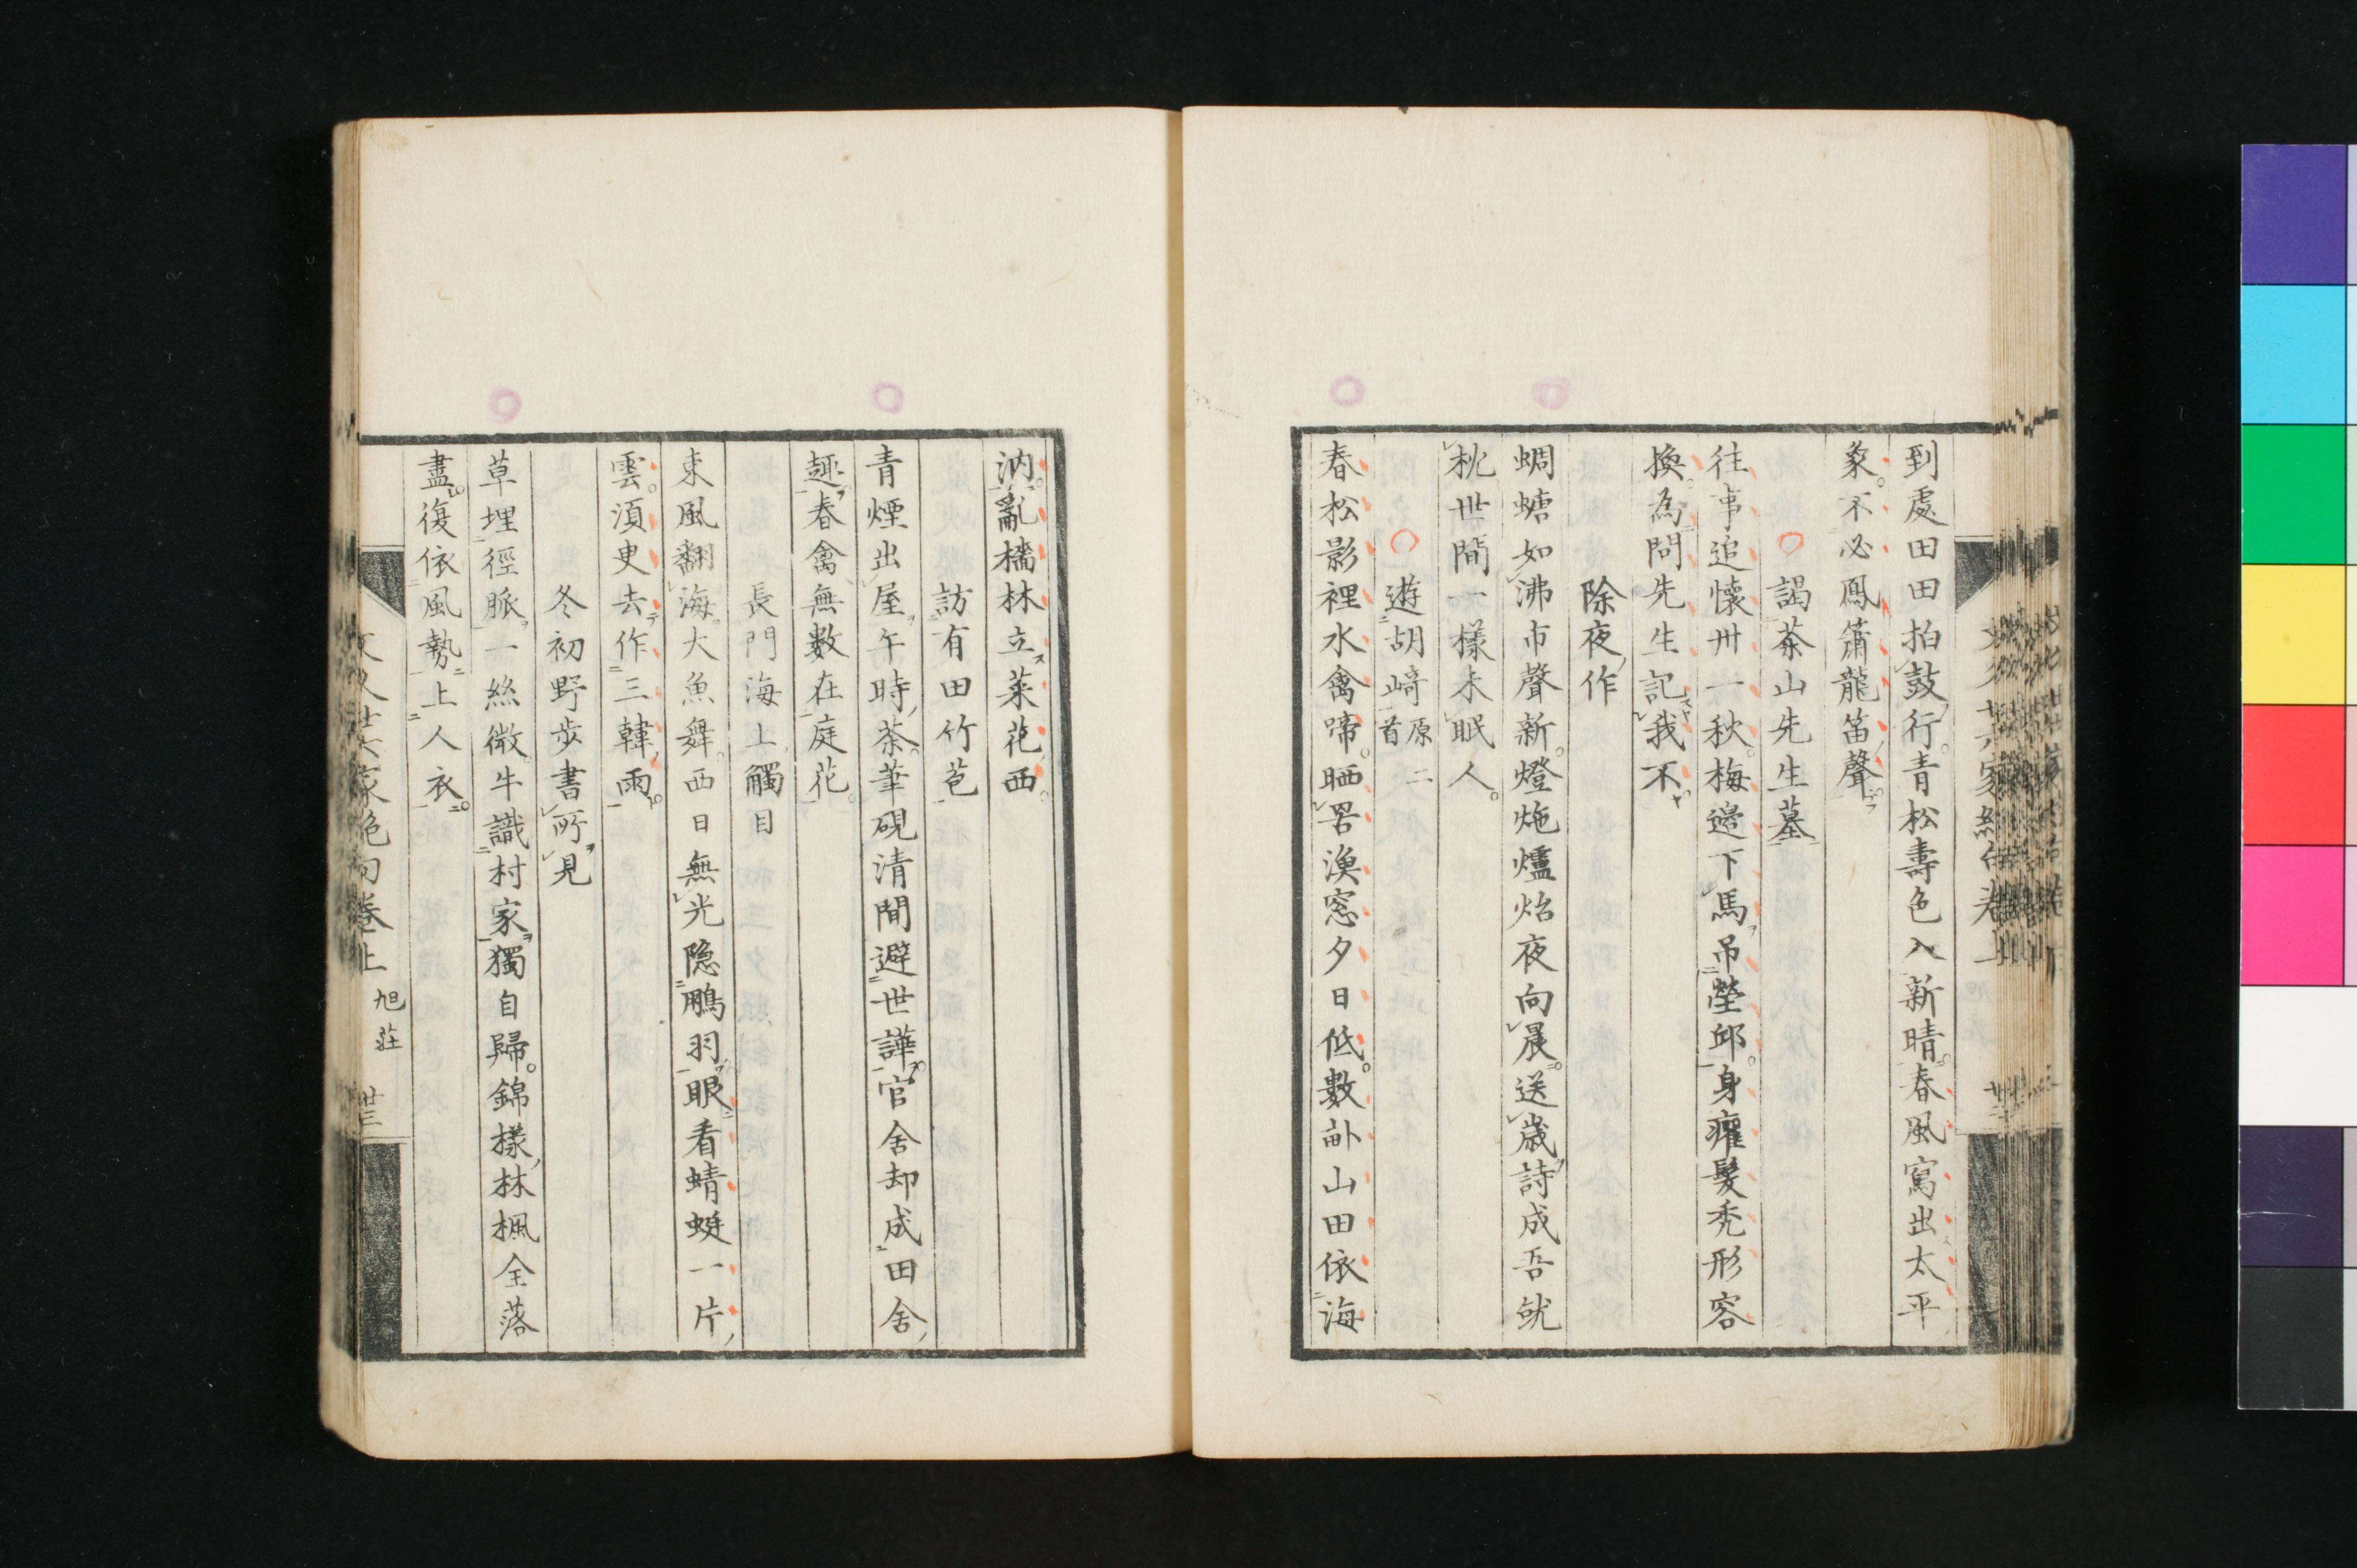 到處田田拍鼓行。青松壽色入新晴。春風寫出太平
象。不必鳳簫龍笛聲。
謁茶山先生墓
往事追懷卅一秋。梅邊下馬吊塋邱。身癯髮禿形容
換。為問先生記我不
除夜作
蜩螗如沸市聲新。燈灺爐炲夜向晨。送歲詩成吾就
枕世間一樣未眠人。
遊胡﨑原二首
春松影裡水禽啼。晒罟漁窓夕日低。數畝山田依海
汭。亂檣林立菜花西。
訪有田竹苞
青煙出屋午時茶。筆硯清閒避世譁。官舍却成田舍
趣。春禽無數在庭花。
長門海上觸目
東風翻海大魚舞。西日無光隐鵬羽。眼看蜻蜓一片
雲。須臾去作三韓雨。
冬初野步書所見
草埋徑脈一絲微。牛識村家獨自歸。錦樣林楓全落
盡。復依風勢上人衣。
文久廿六家絶句卷上 旭荘 廿三